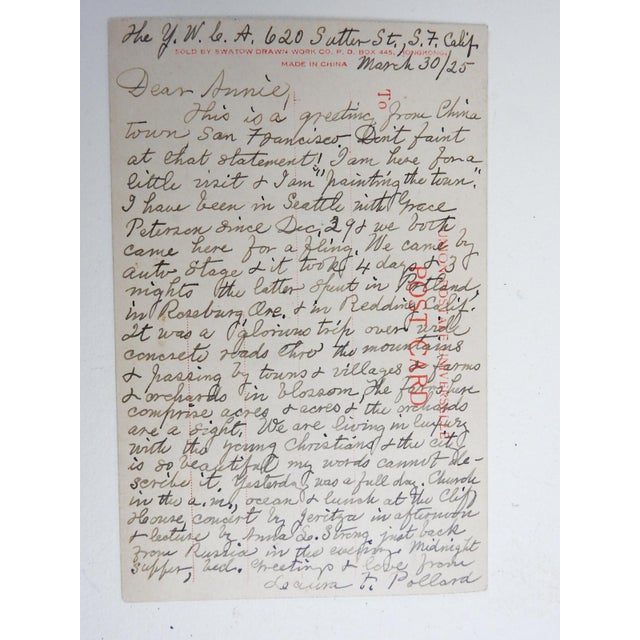 The Y. W. C. A. 620 Sutter St., S. F. Calif
SOLD BY SWATOW DRAWN WORK CO., P. O. BOX 445, HONGKONG.
MADE IN CHINA
March 30/25
To
UNION POSTALE UNIVERSELLE
POST CARD
Dear Annie,
This is a greeting from China
town, San Francisco. Don't faint
at that statement! I am here for a
little visit & I am "painting the town".
I have been in Seattle with Grace
Peterson since Dec. 29 & we both
came here for a fling. We came by
auto stage & it took 4 days & 3
nights the latter spent in Portland,
in Roseburg Ore. & in Redding Calif.
It was a glorious trip over wide
concrete roads thro the mountains
& passing by towns & villages & farms
& orchards in blossom. The farms here
comprise acres & acres & the orchards
are a sight. We are living in luxury
with the Young Christians & the city
is so beautiful my words cannot de-
scribe it. Yesterday was a full day. Church
in the a.m., ocean & lunch at the Cliff
House, concert by Jeritza in afternoon
& lecture by Anna L. Strong just back
from Russia in the evening. Midnight
supper, bed. Greetings & love from
Laura F. Pollard